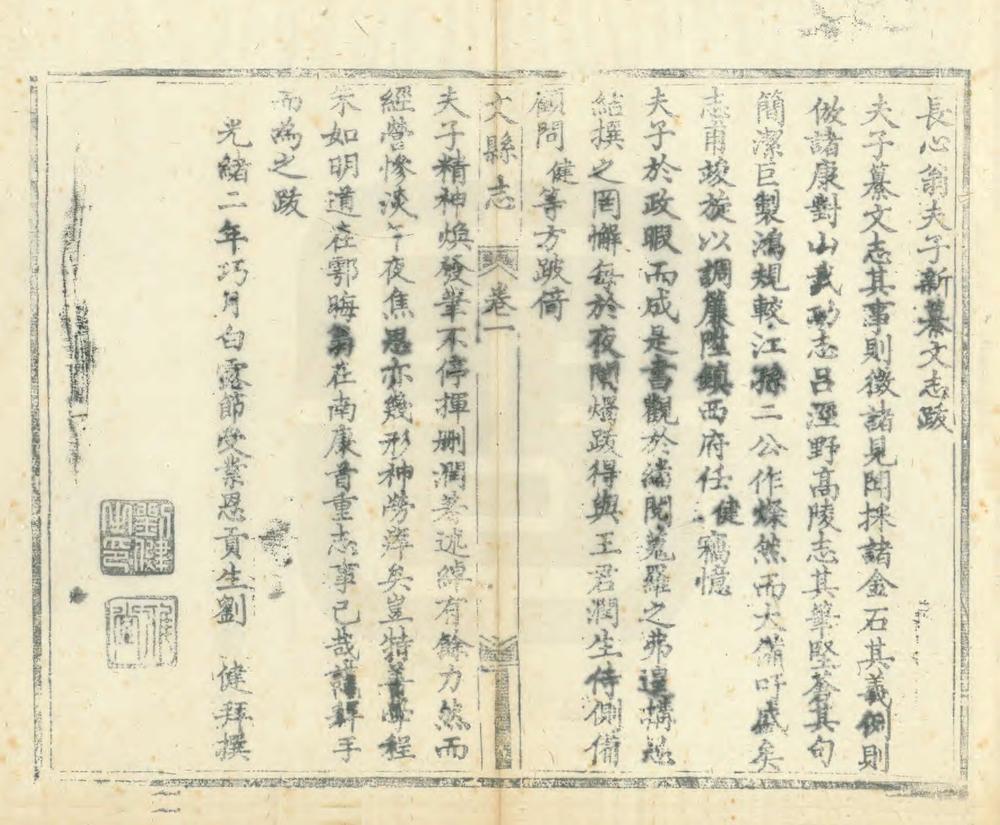 長心翁夫子新纂文志跋
夫子纂文志其事則徵諸見聞採諸金石其義例則
倣諸康對山武功志呂涇野高陵志其筆堅蒼其句
簡潔巨製鴻規較江孫二公作燦然而大備吁盛矣
志甫竣旋以調簾陞鎮西府任健竊憶
夫子於政暇而成是書觀於繙閱蒐羅之弗遑構思
結撰之罔懈每於夜闌燭跋得與王君潤生侍側備
顧問健等方跛倚
文縣志 卷一
夫子精神煥發筆不停揮刪潤著述綽有餘力然而
經營慘淡午夜焦思亦幾形神勞瘁矣豈特學程
朱如明道在鄠晦翁在南康首重志事已哉謹拜手
而為之跋
光緒二年巧月白露節受業恩貢生劉 健拜撰
劉健之印